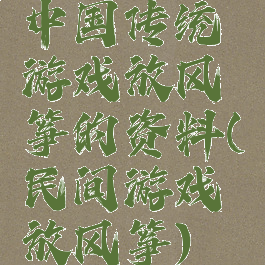 中国传统
游戏放风
筝的资料(
民间游戏
放风筝)